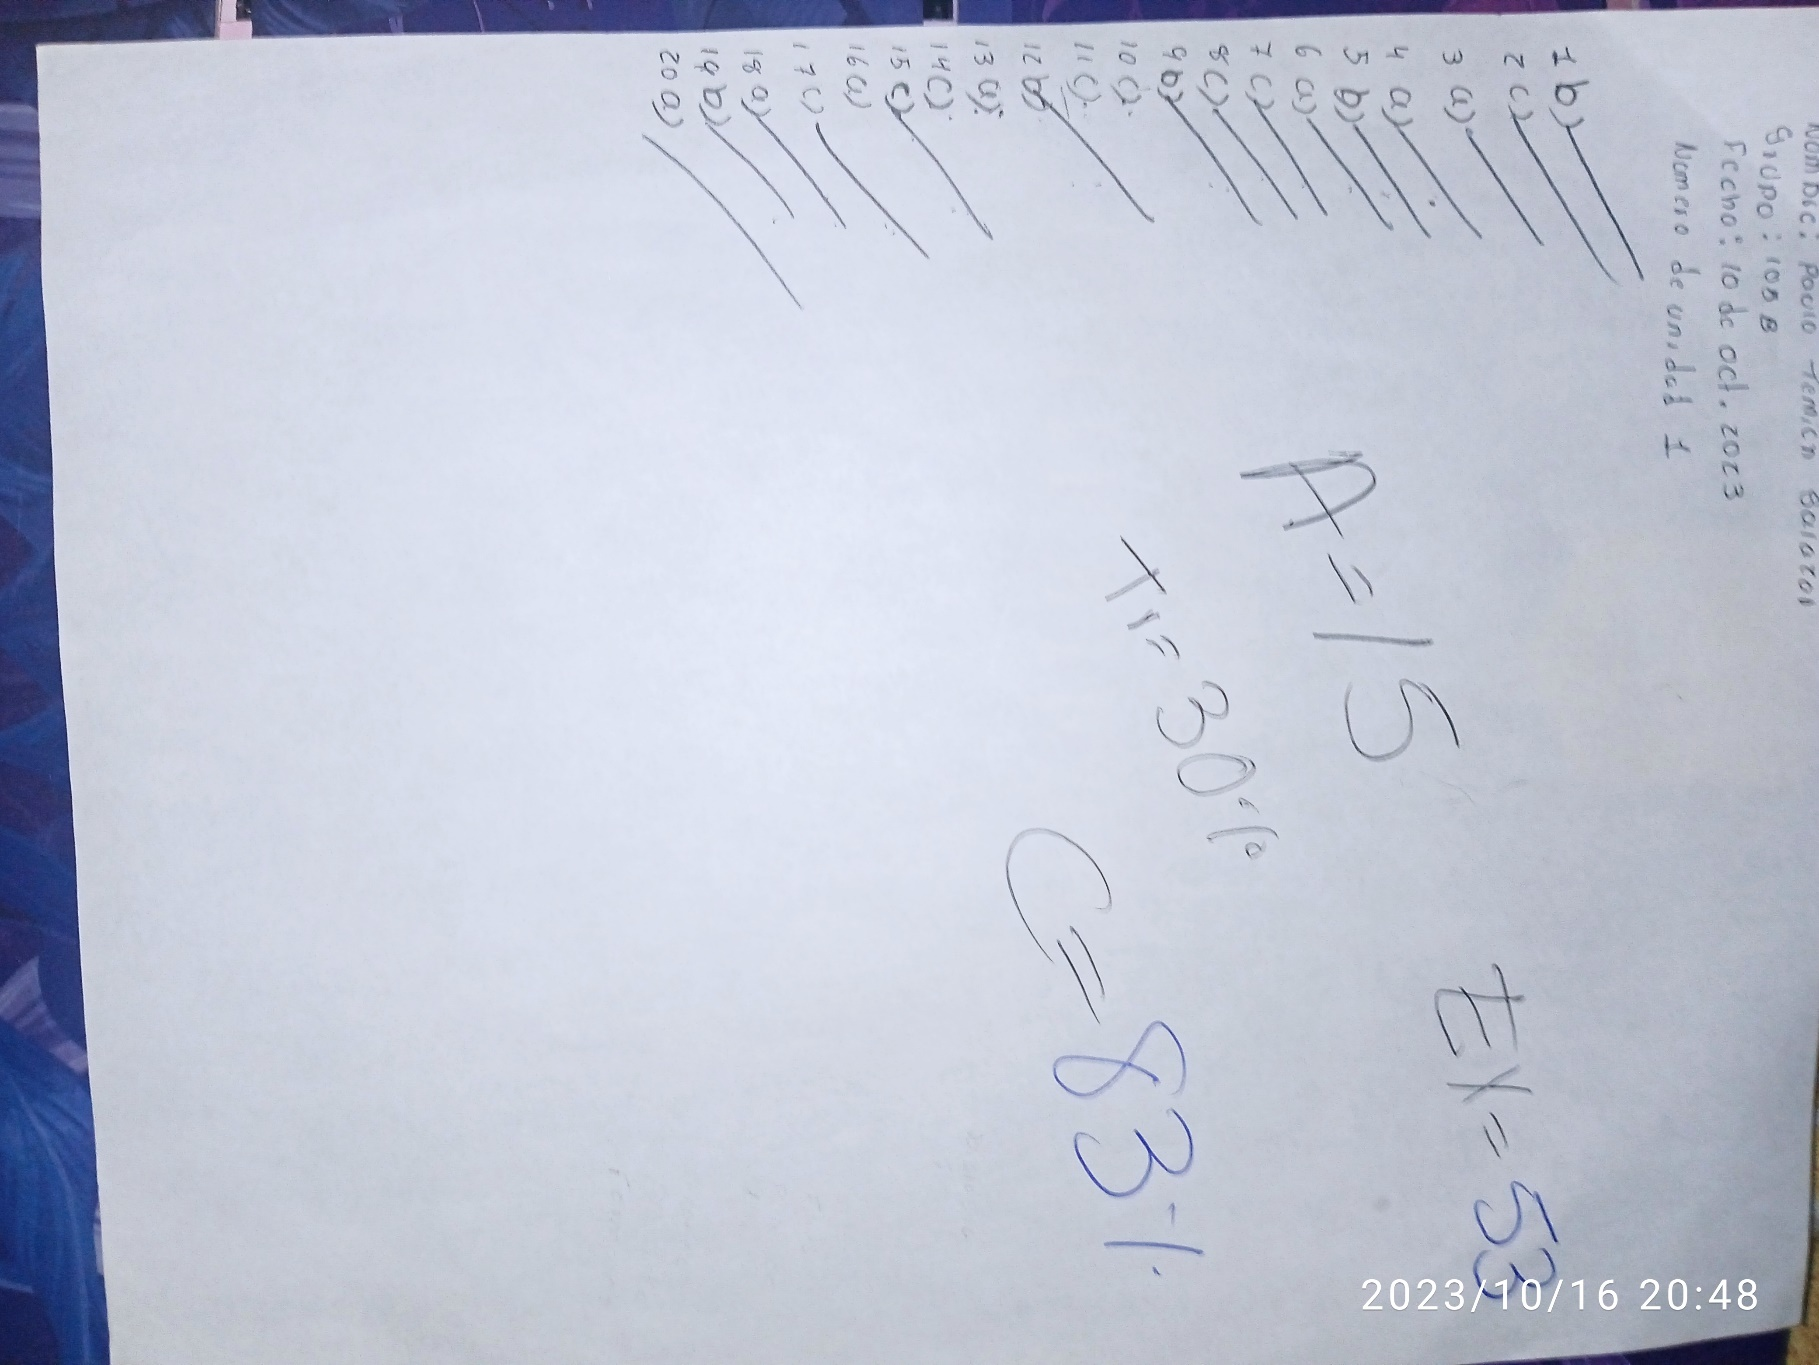 Nombre:
Grupo: 108 B
Fecha: 10 de oct. 2023
Numero de unidad 1
1 b)
2 c)
3 a)
4 a)
5 b)
6 a)
7 c)
8 c)
9 b)
10 c)
11 c)
12 b)
13 a)
14 c)
15 c)
16 a)
17 c)
18 a)
19 b)
20 a)
A = 15
EX = 53
TI = 30%
C = 83%
2023/10/16 20:48